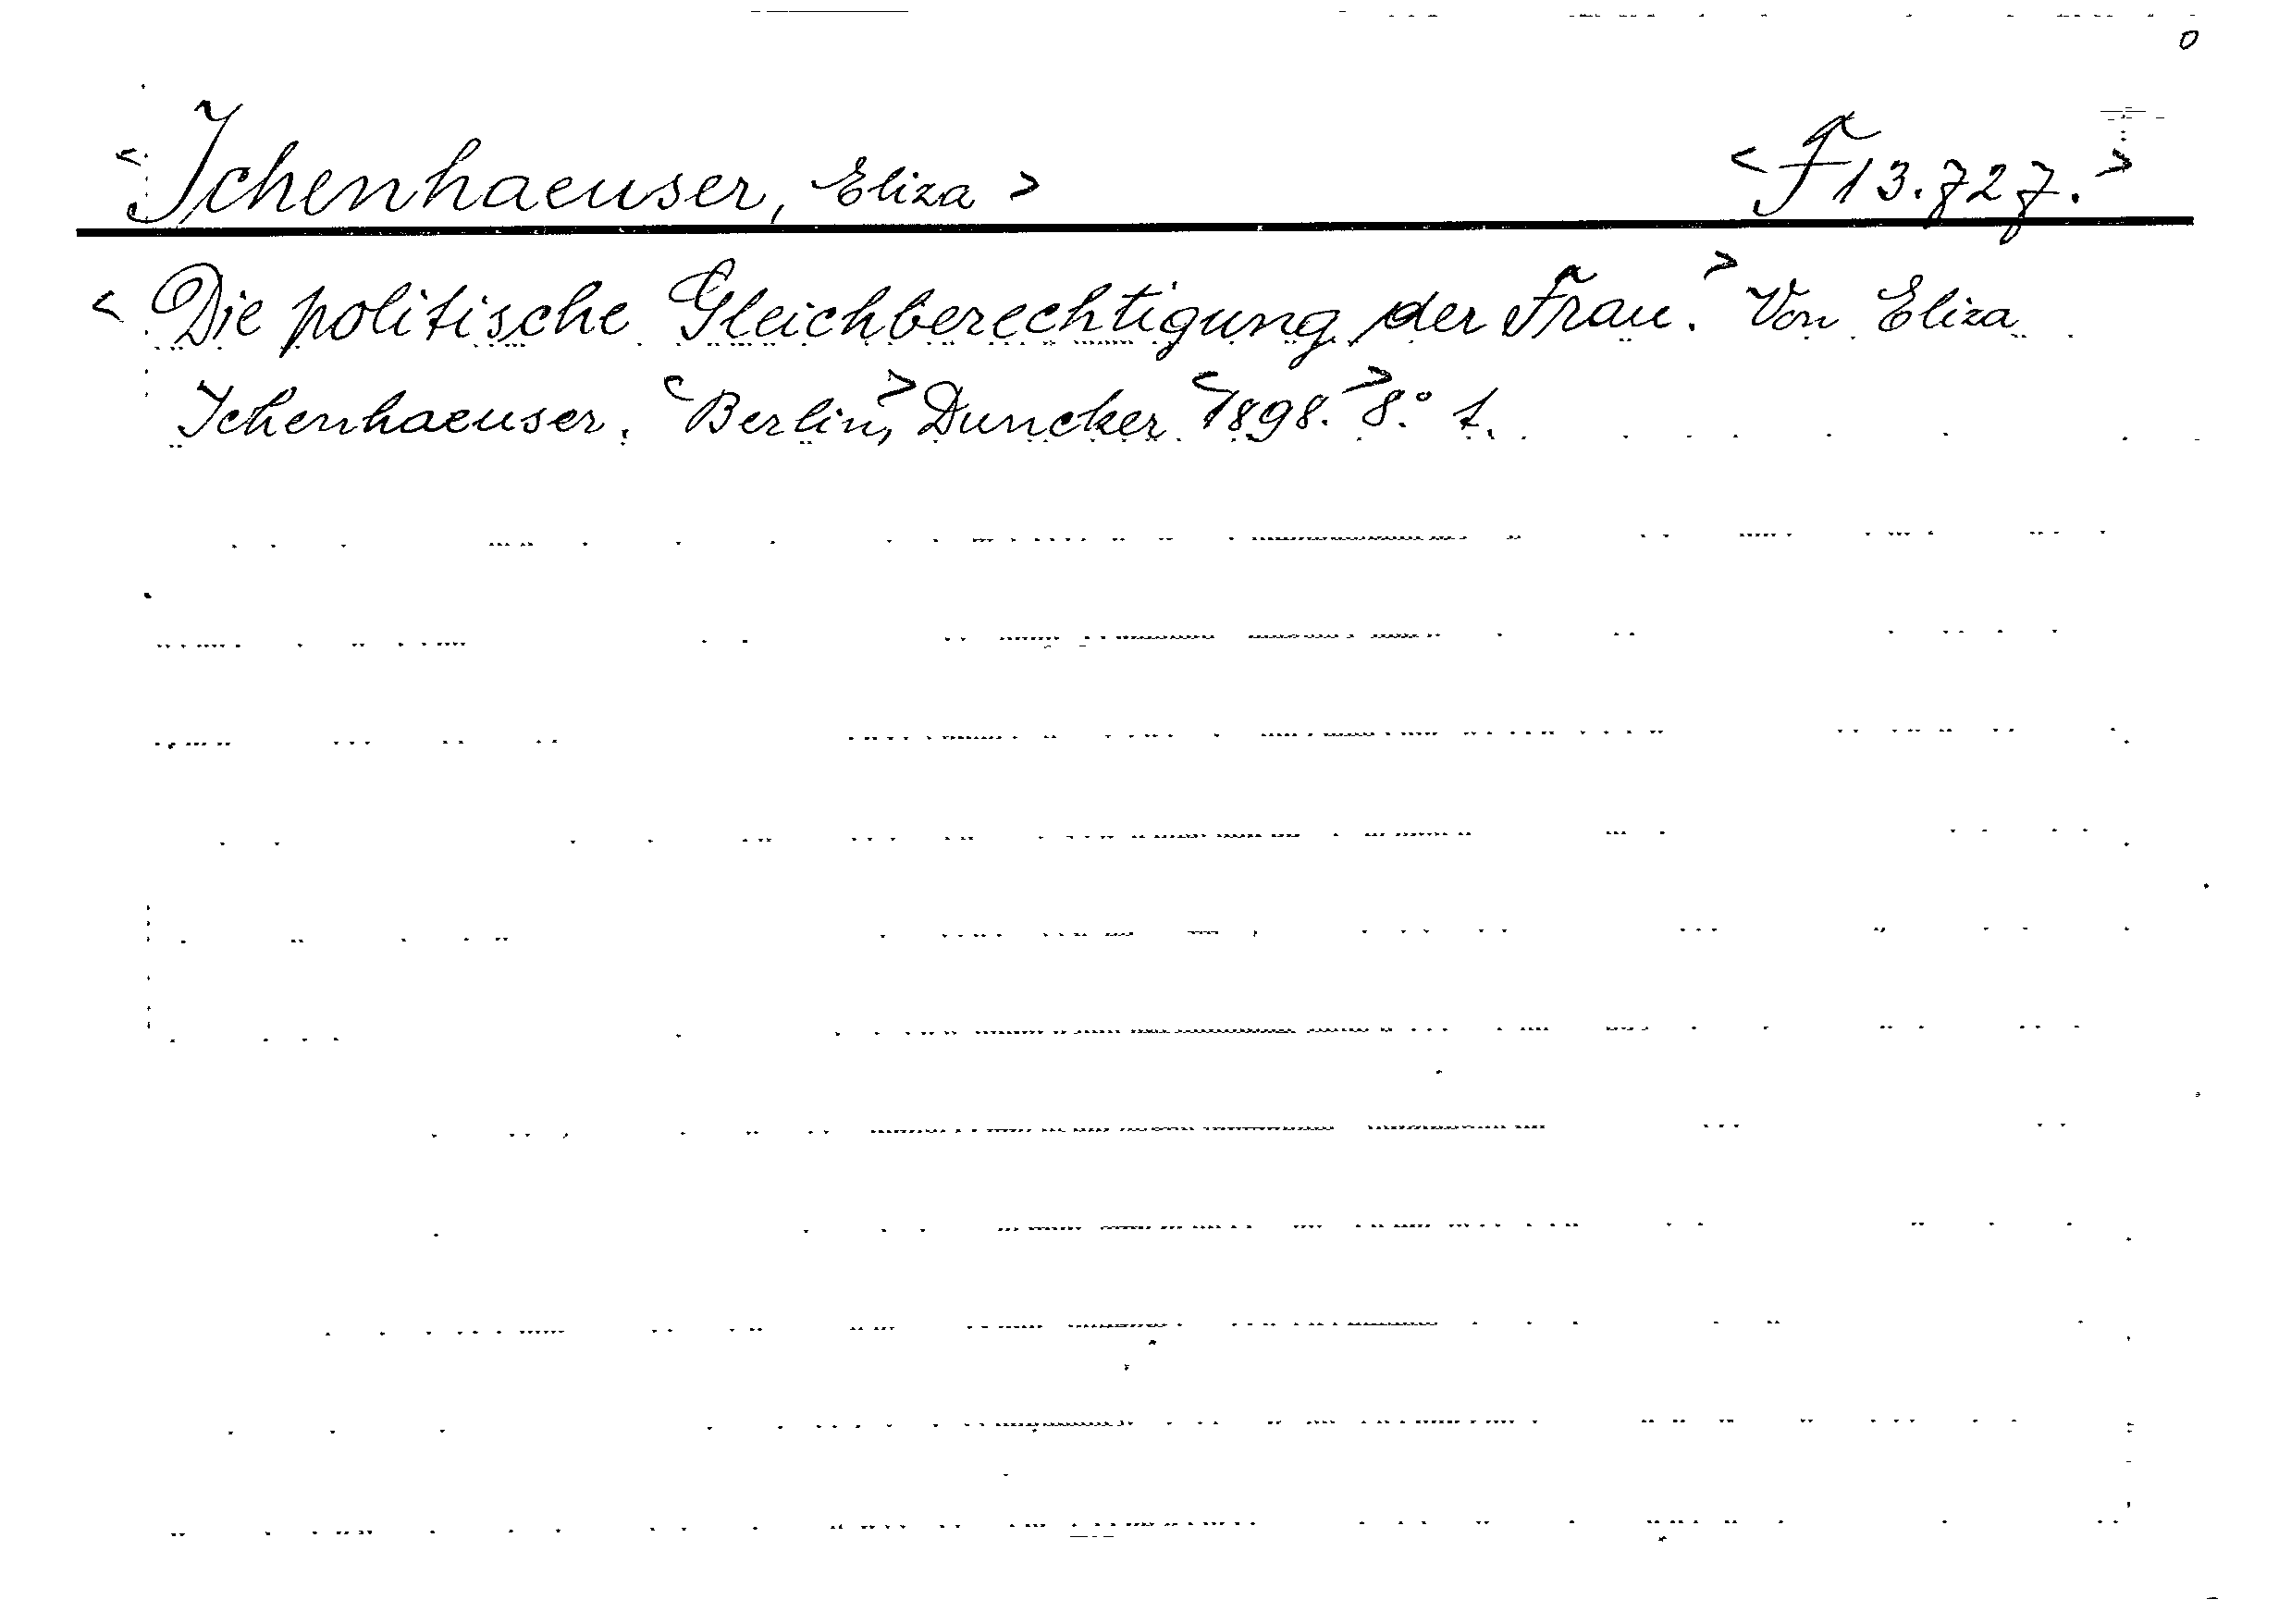 <Ichenhaeuser, Eliza> <F 13.727.>
<Die politische Gleichberechtigung der Frau.> Von Eliza
Ichenhaeuser. <Berlin,> Duncker <1898.> 8.° 1.